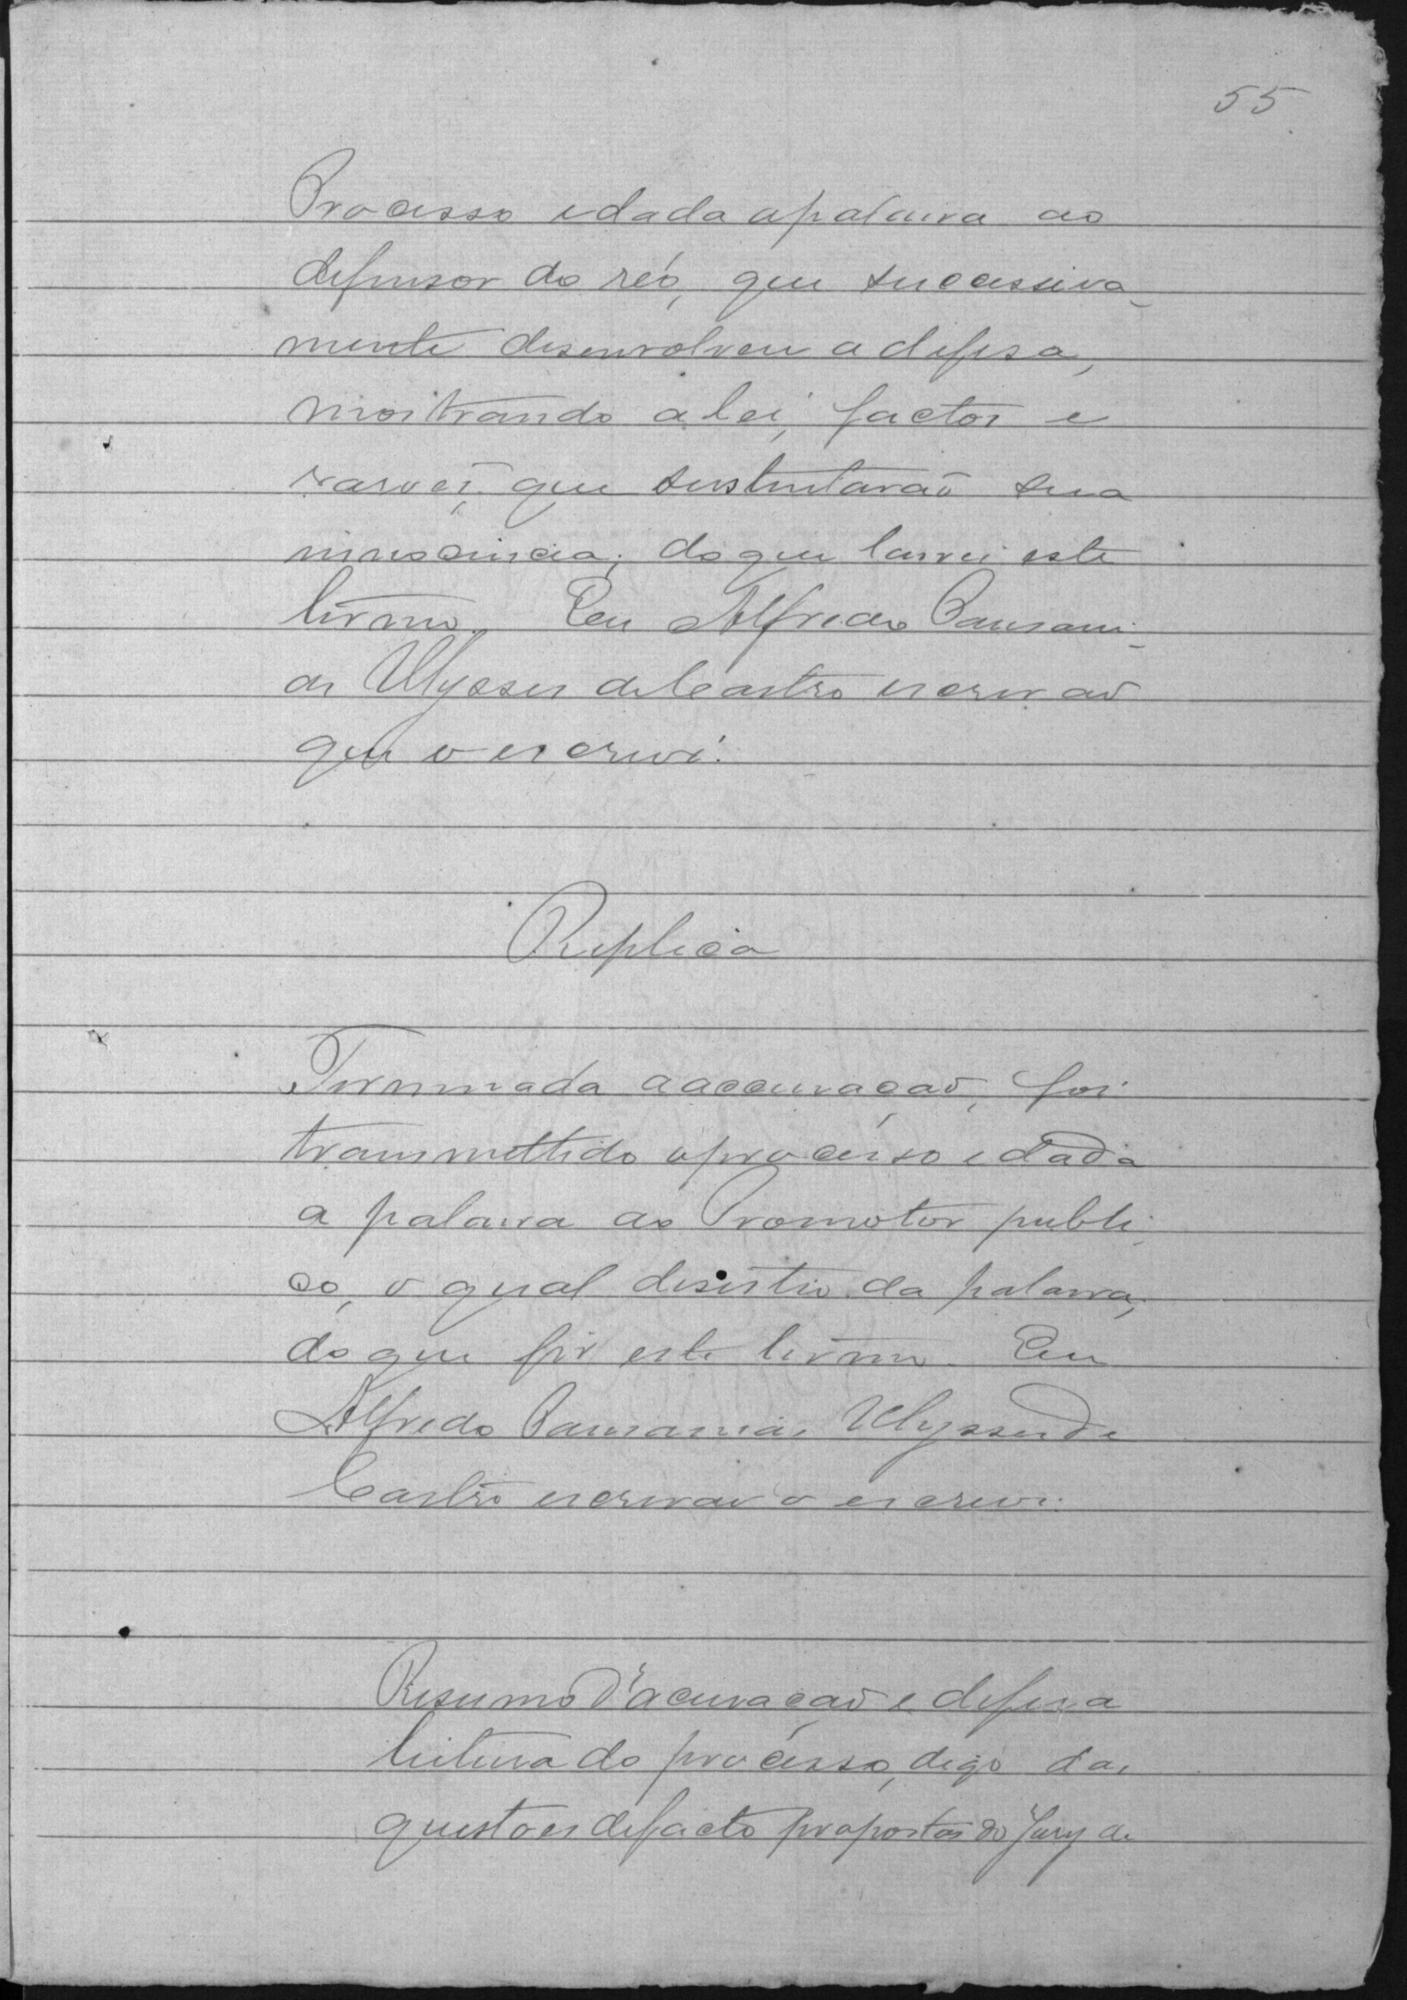 55
Processo e dada a palavra ao
defensor do réo, que successiva-
mente desenvolveu a defesa,
mostrando a lei, factos e
rasoes, que sustentavaõ sua
innocencia, do que lavrei este
termo. Eu Alfredo Pausani-
as Ulysses de Castro escrivaõ
que o escrevi.
Replica
Terminada a accusaçaõ, foi
transmettido o processo e dada
a palavra ao Promotor publi-
co, o qual desistio da palavra,
do que fiz este termo. Eu
Alfredo Pausanias Ulysses de
Castro escrivaõ o escrevi.
Resumo d'acusaçaõ e defesa
leitura do processo, digo das
questoes de facto propostas ao Jury de